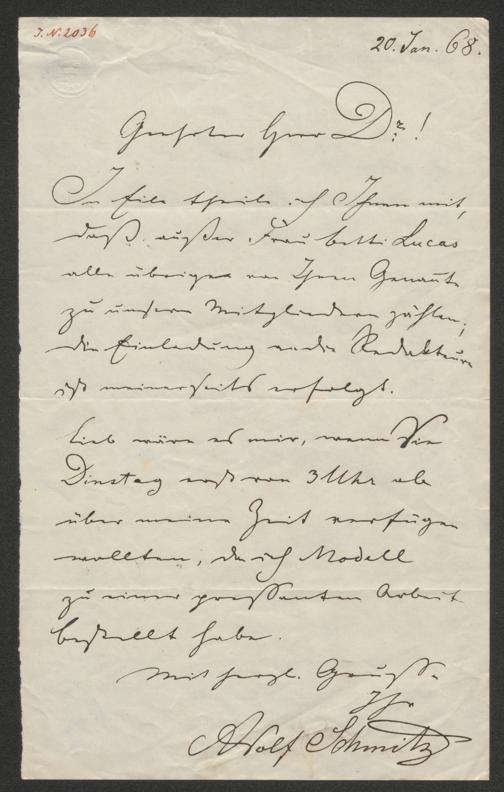 J. N. 2036
20. Jan. 68.
Geehrter Herr Dr.!
In Eile theile ich Ihnen mit,
daß außer Frau Betti Lucas
alle übrigen von Ihnen Genannte
zu unseren Mitgliedern zählen;
die Einladung an die Redakteure
ist meinerseits erfolgt.
Lieb wäre es mir, wenn Sie
Dinstag erst von 3 Uhr ab
über meine Zeit verfügen
wollten, da ich Modell
zu einer pressanten Arbeit
bestellt habe.
Mit herzl. Grusse
Ihr
Adolf Schmitz